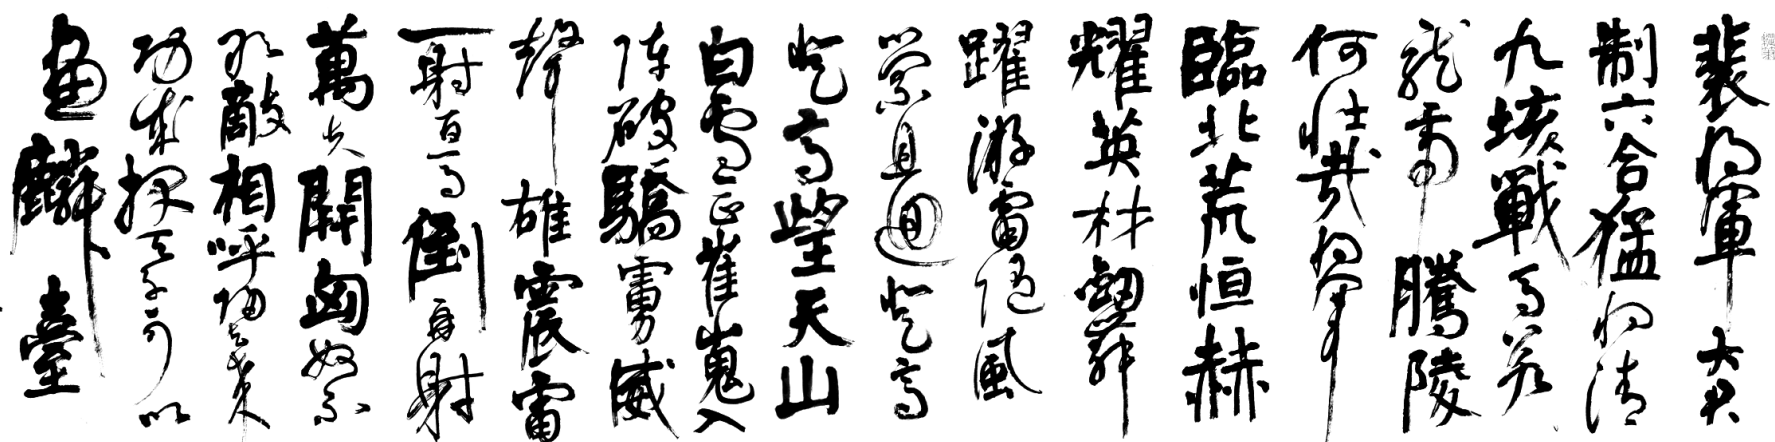 裴将軍大君
制六合猛将清
九垓戰馬若
龍虎騰陵
何壯哉将軍
臨北荒恒赫
耀英材劒舞
躍游雷随風
縈且迴登高
登高望天山
白雲正崔嵬入
陣破驕虜威
聲雄震雷
一射百馬倒再射
萬夫開匈奴不
敢敵相呼歸去来
功成報天子可以
畫麟臺